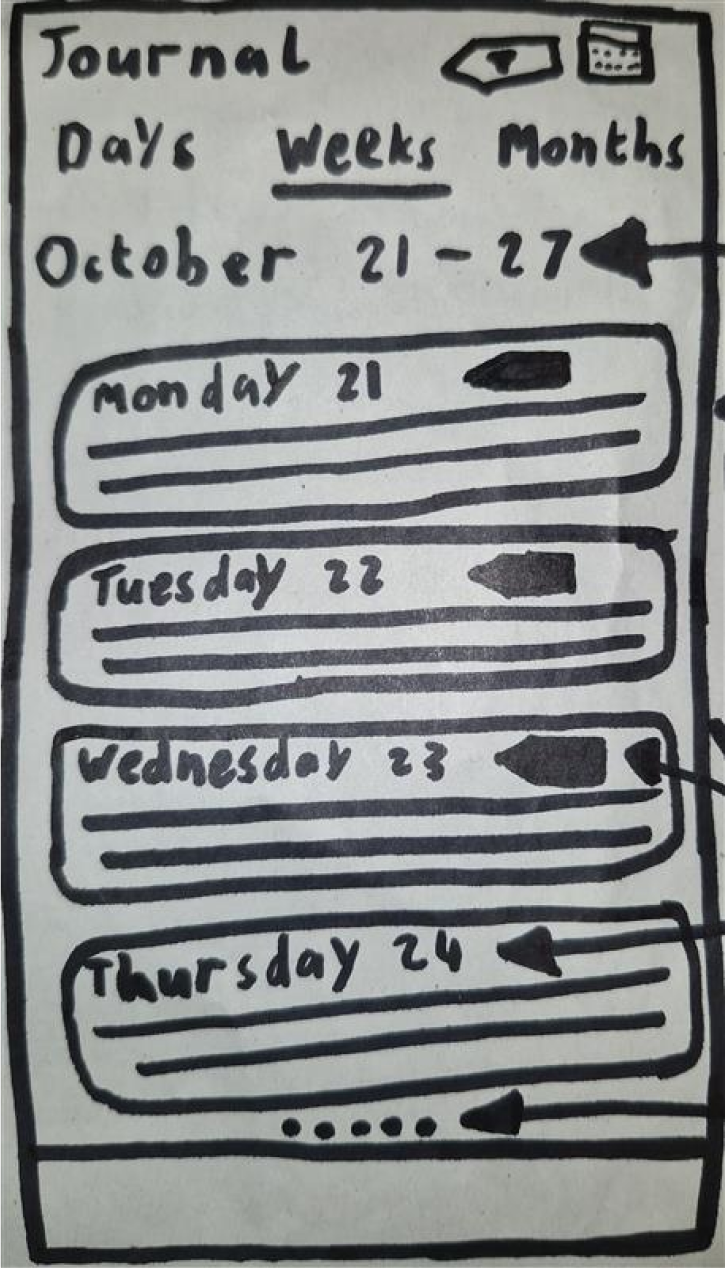 Journal
Days Weeks Months
October 21 - 27
Monday 21
Tuesday 22
Wednesday 23
Thursday 24